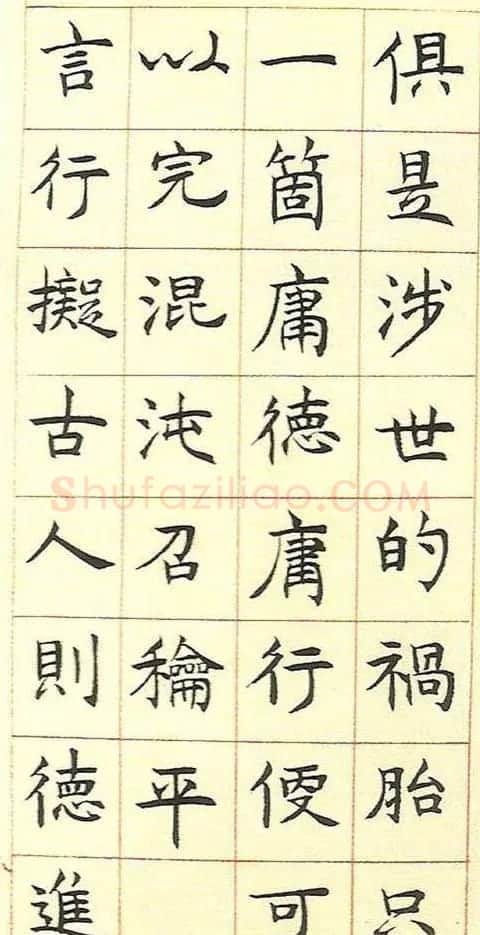 俱是涉世的禍胎只
一箇庸德庸行便可
以完混沌召龢平
言行擬古人則德進
Shufaziliao.COM